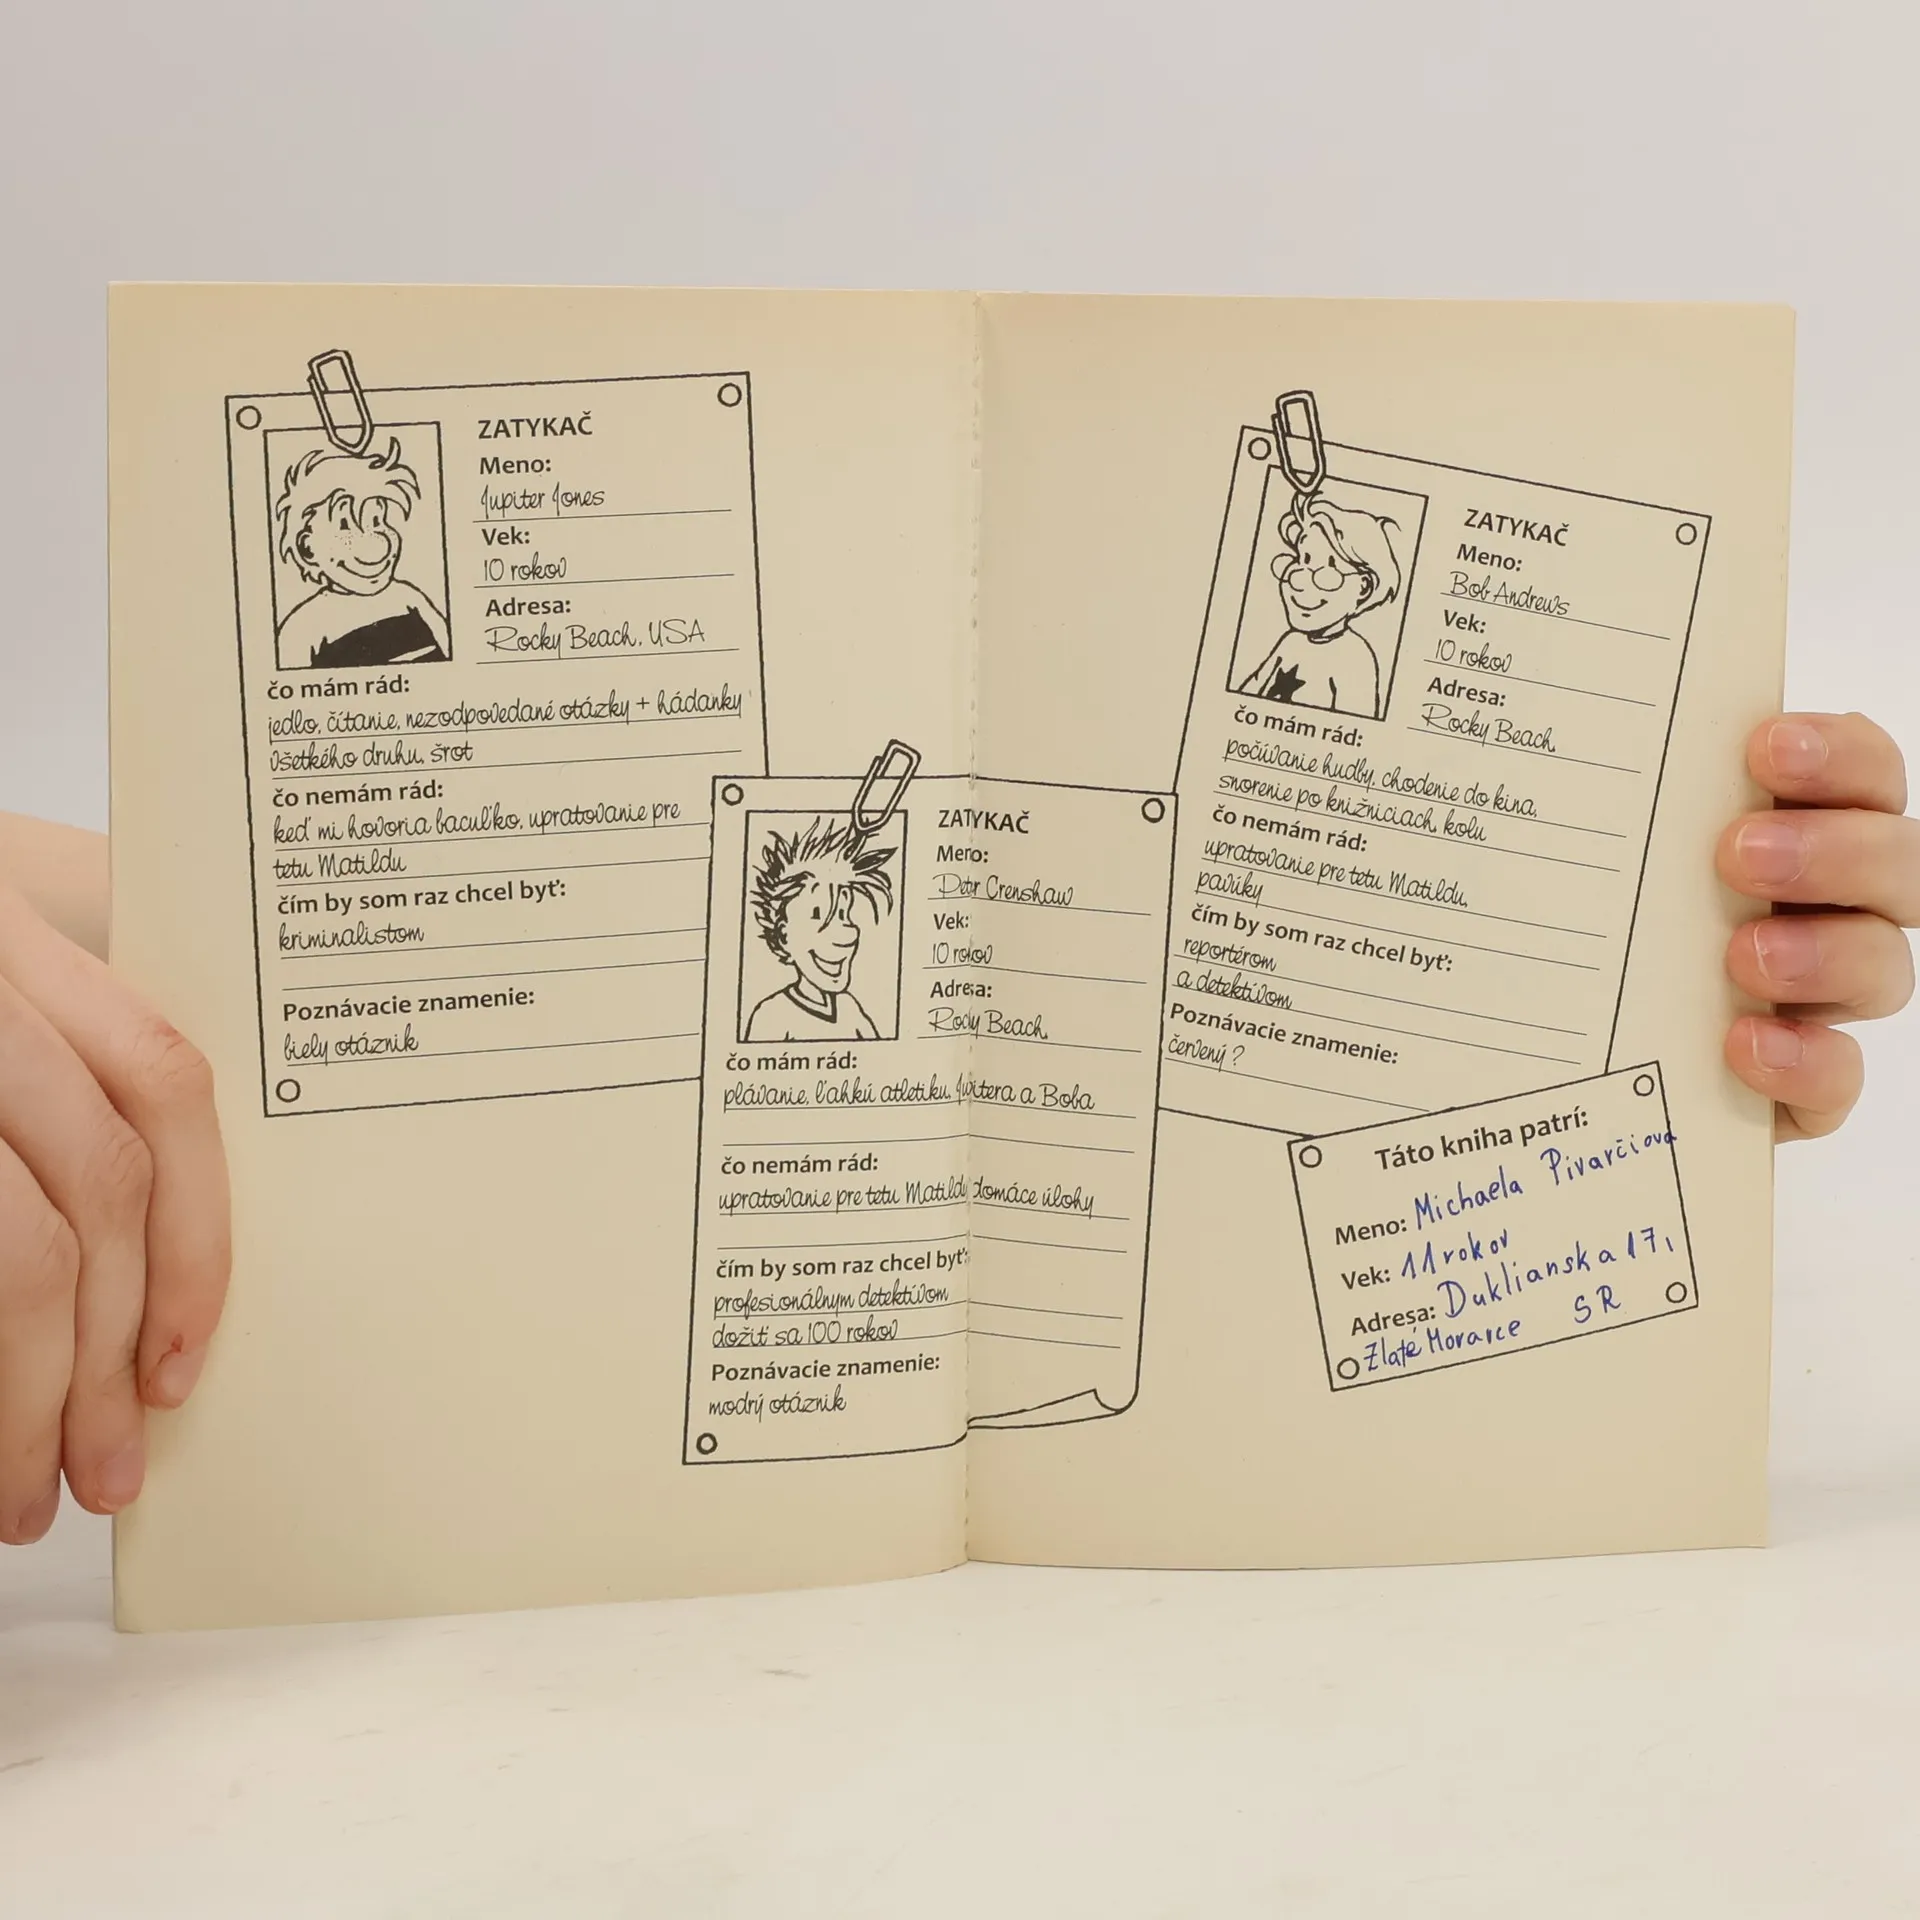 ZATYKAČ
Meno:
Jupiter Jones
Vek:
10 rokov
Adresa:
Rocky Beach, USA
čo mám rád:
jedlo, čítanie, nezodpovedané otázky + hádanky
všetkého druhu, šrot
čo nemám rád:
keď mi hovoria baculko, upratovanie pre
tetu Matildu
čím by som raz chcel byť:
kriminalistom
Poznávacie znamenie:
biely otáznik
ZATYKAČ
Meno:
Petr Crenshaw
Vek:
10 rokov
Adresa:
Rocky Beach
čo mám rád:
plávanie, ľahkú atletiku, Jupitera a Boba
čo nemám rád:
upratovanie pre tetu Matildu, domáce úlohy
čím by som raz chcel byť:
profesionálnym detektívom
dožiť sa 100 rokov
Poznávacie znamenie:
modrý otáznik
ZATYKAČ
Meno:
Bob Andrews
Vek:
10 rokov
Adresa:
Rocky Beach
čo mám rád:
počúvanie hudby, chodenie do kina,
snorenie po knižniciach, kolu
čo nemám rád:
upratovanie pre tetu Matildu,
pavúky
čím by som raz chcel byť:
reportérom
a detektívom
Poznávacie znamenie:
červený ?
Táto kniha patrí:
Meno: Michaela Pivarčiová
Vek: 11 rokov
Adresa: Duklianska 17,
Zlaté Moravce SR